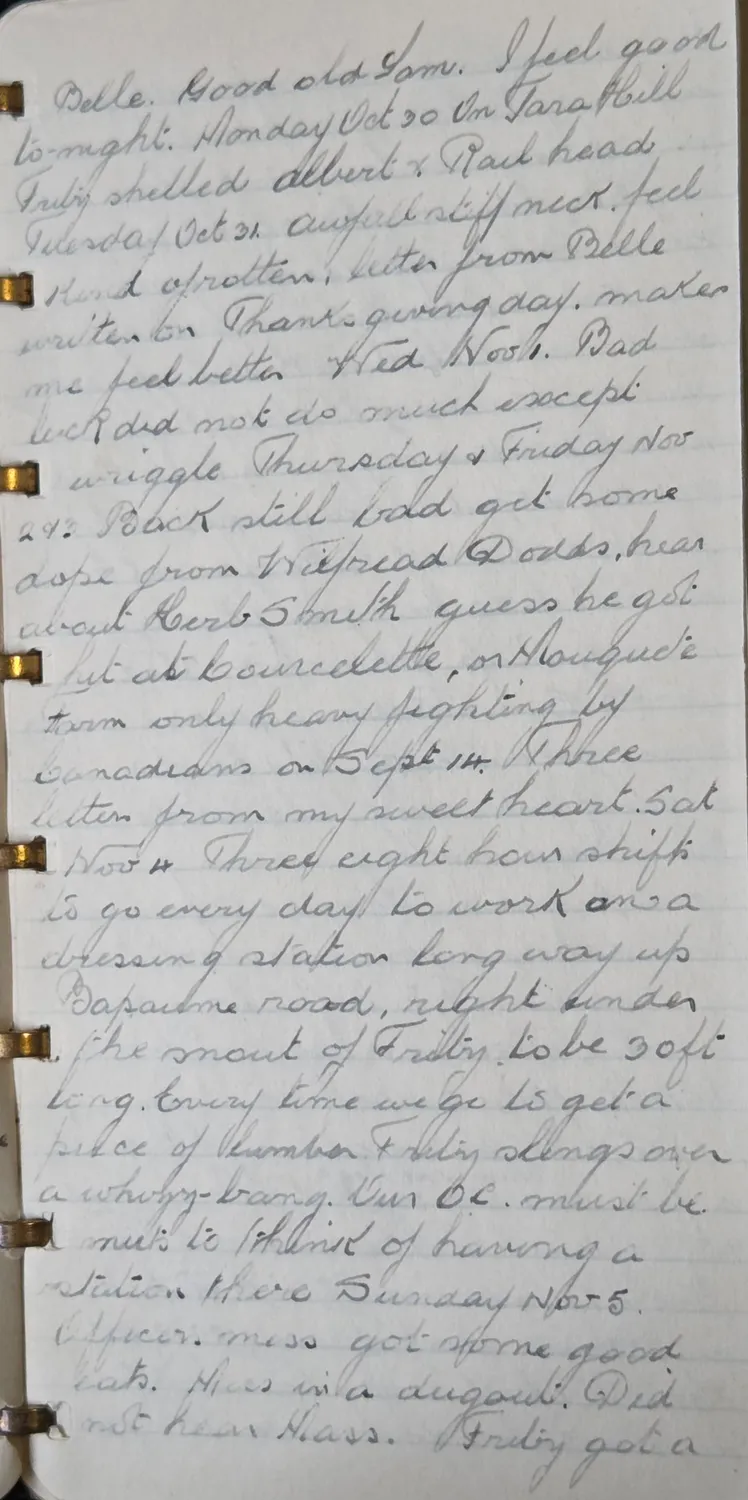 Belle. Good old Sam. I feel good
to-night. Monday Oct 30 On Tara Hill
Fritz shelled albert & Rail head
Tuesday Oct 31. awfull stiff neck. feel
kind of rotten, letter from Belle
written on Thanksgiving day. makes
me feel better Wed Nov 1. Bad
luck did not do much except
wriggle Thursday & Friday Nov
2 & 3 Back still bad get some
dope from Wilfread Dodds, hear
about Herb Smith guess he got
hit at Courcelette, or Mouquete
Farm only heavy fighting by
Canadians on Sept 14. Three
letters from my sweet heart. Sat
Nov 4 Three eight hour shifts
to go every day to work on a
dressing station long way up
Bapaume road, right under
the snout of Fritz. to be 30 ft
long. Every time we go to get a
piece of lumber Fritz slings over
a whizz-bang. Our OC. must be
a muts to think of having a
station there Sunday Nov 5.
Officers mess got some good
eats. Mess in a dugout. Did
not hear Mass. Fritz got a